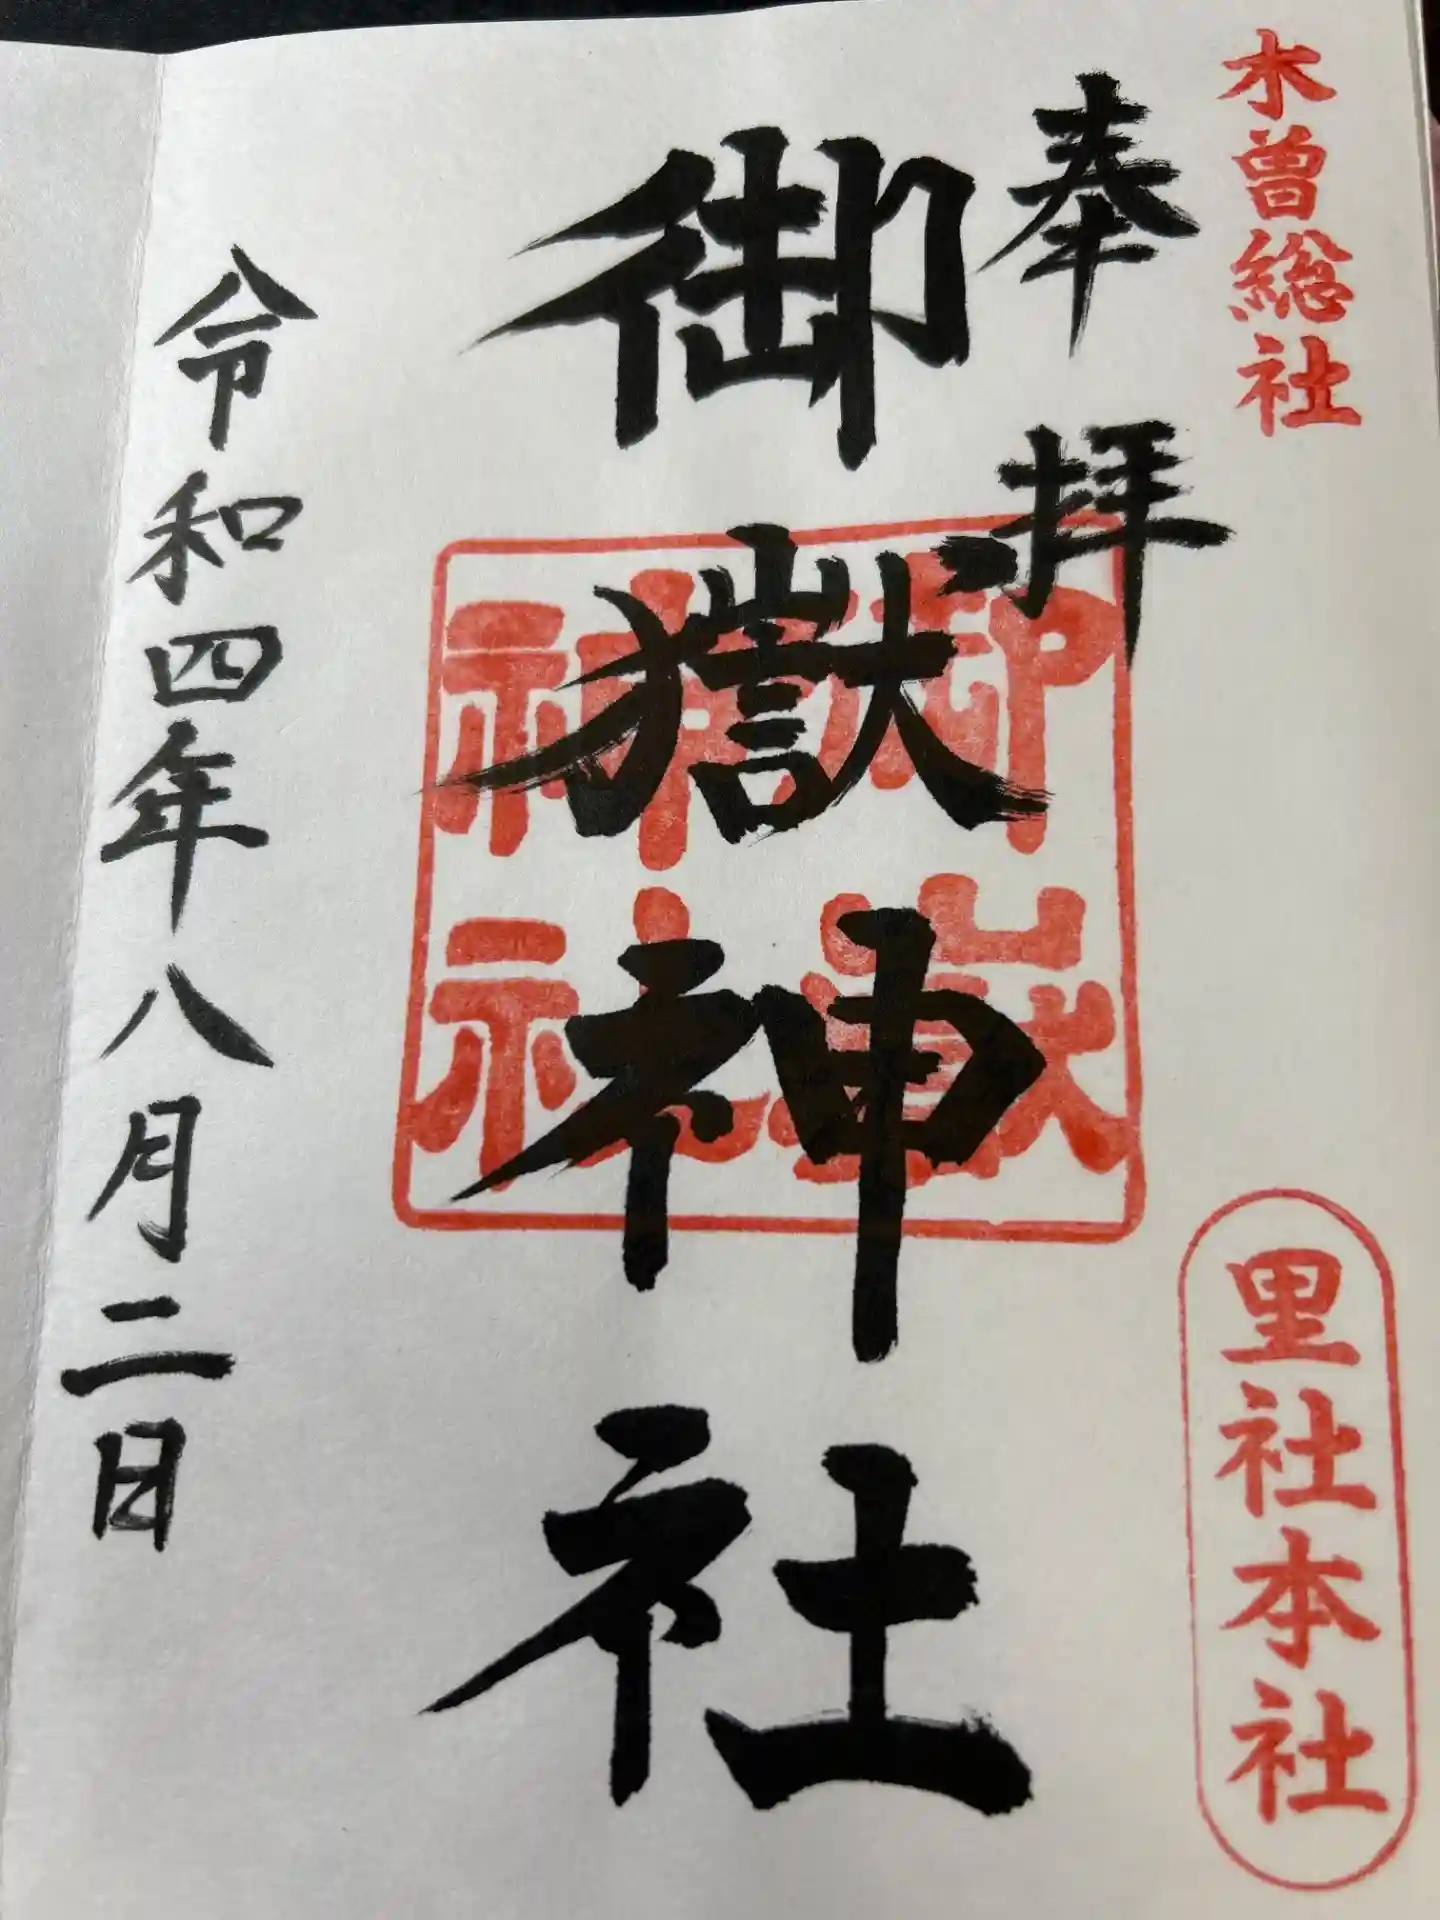 木曽総社
奉拝
御嶽神社
御嶽
神社
里社本社
令和四年八月二日